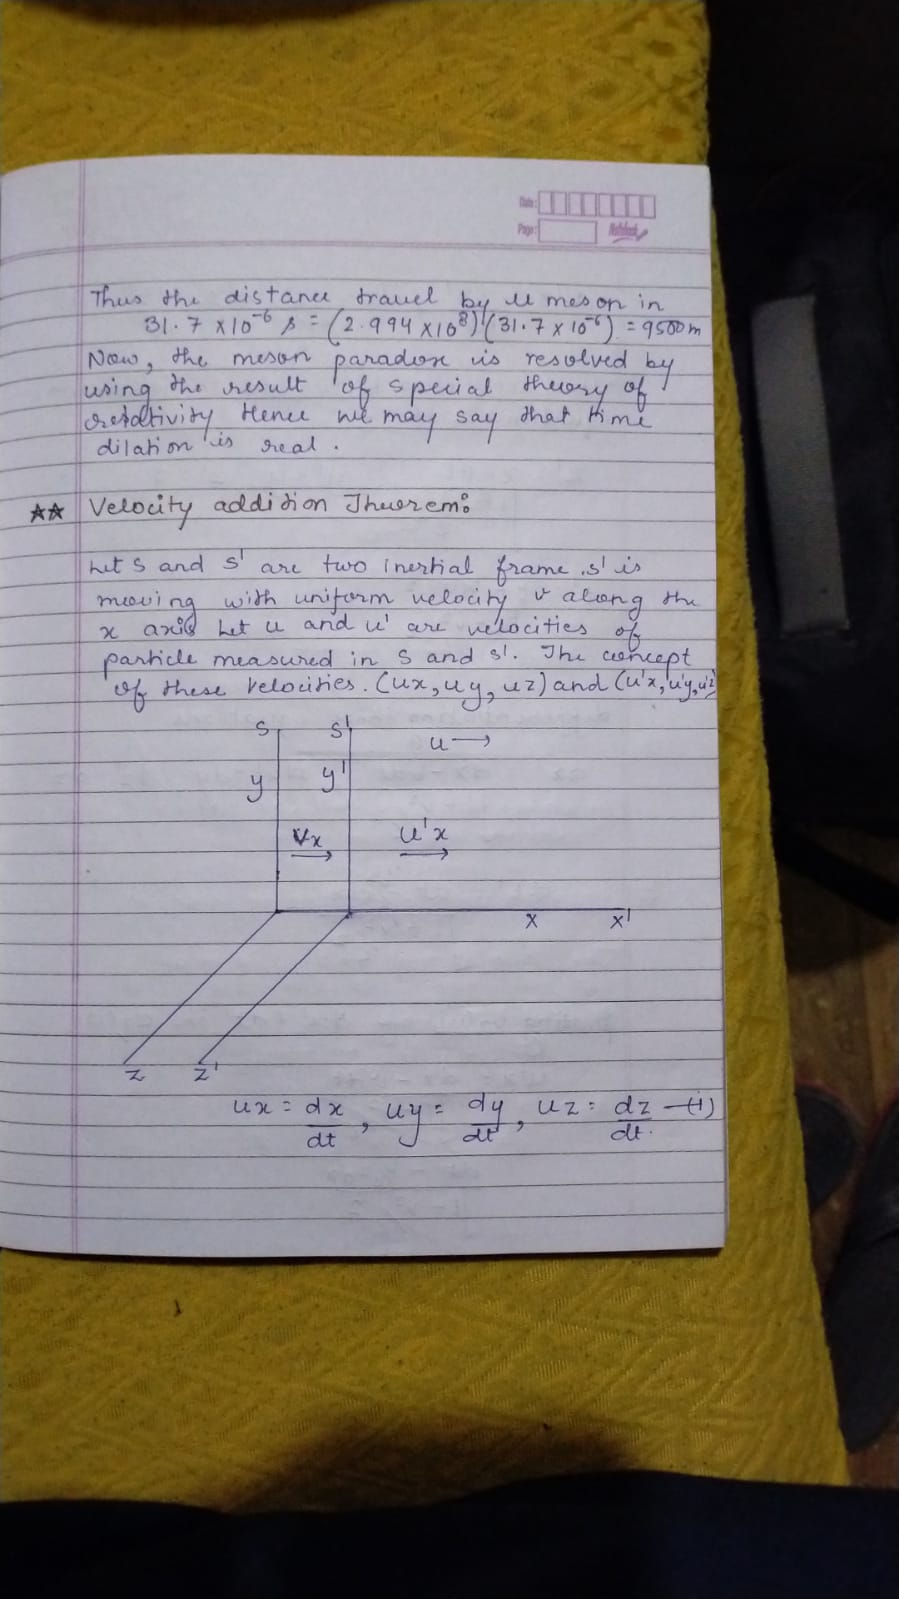 Date:
Page:
Notebook
Thus the distance travel by μ meson in
31.7 x10⁻⁶ s = (2.994 x10⁸) (31.7 x 10⁻⁶) = 9500m
Now, the meson paradox is resolved by
using the result of special theory of
relativity Hence we may say that time
dilation is real.
★★ Velocity addition Theorem:
Let S and S' are two inertial frame. S' is
moving with uniform velocity v along the
x axis Let u and u' are velocities of
particle measured in S and S'. The concept
of these velocities. (ux, uy, uz) and (u'x, u'y, u'z)
S S' u →
y y'
Vx → u'x →
x x'
z z'
ux = dx/dt, uy = dy/dt, uz = dz/dt. —(1)